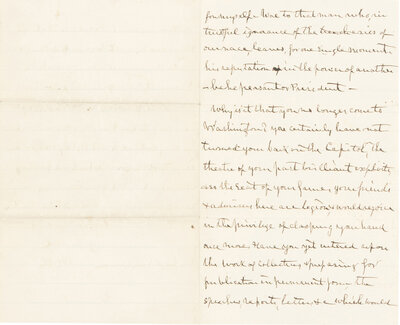 for myself. Woe to that man who, in
trustful ignorance of the treacheries of
our race, leaves, for one single moment
his reputation in the power of another
– be he peasant or President –
Why is it that you no longer come to
Washington? You certainly have not
turned your back on the Capitol, the
theatre of your past brilliant exploits
and the seat of your fame. Your friends
& admirers here are legion & would rejoice
in the privilege of clasping your hand
once more. Have you yet entered upon
the work of collecting & preparing for
publication in permanent form the
speeches, reports, letters &c which would